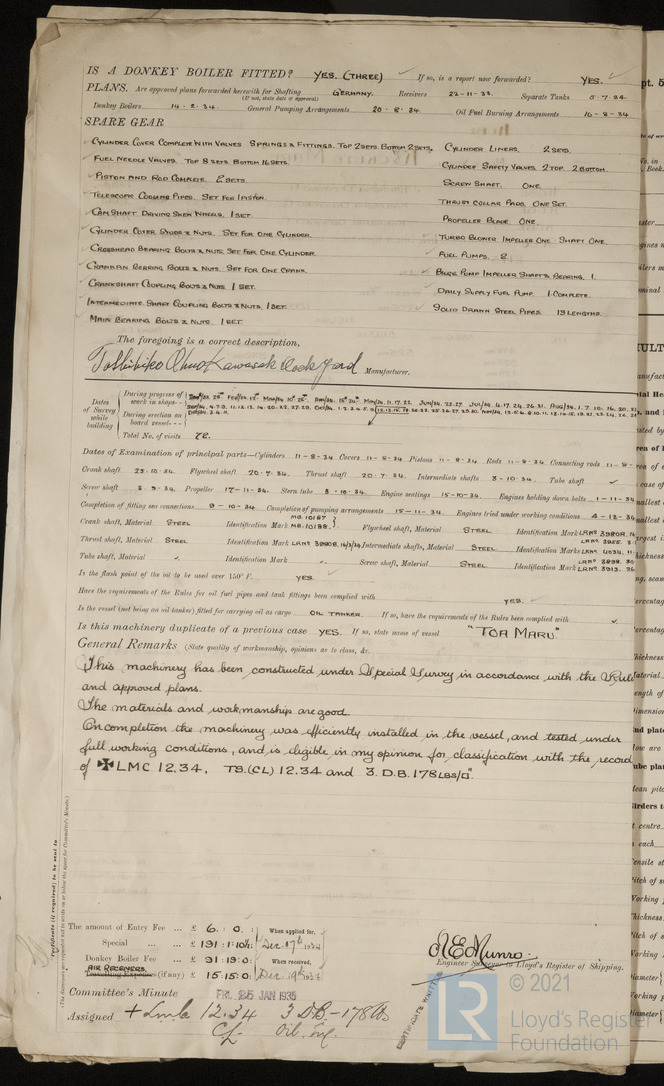 IS A DONKEY BOILER FITTED? YES. (THREE) If so, is a report now forwarded? YES.
PLANS. Are approved plans forwarded herewith for Shafting GERMANY. Receivers 22-11-33. Separate Tanks 5.7.34.
(If not, state date of approval)
Donkey Boilers 14.2.34. General Pumping Arrangements 20.8.34 Oil Fuel Burning Arrangements 16-8-34
SPARE GEAR
CYLINDER COVER COMPLETE WITH VALVES SPRINGS & FITTINGS. TOP 2 SETS. BOTTOM 2 SETS. CYLINDER LINERS. 2 SETS.
FUEL NEEDLE VALVES. TOP 8 SETS. BOTTOM 16 SETS. CYLINDER SAFETY VALVES 2 TOP. 2 BOTTOM.
PISTON AND ROD COMPLETE. 2 SETS. SCREW SHAFT. ONE.
TELESCOPIC COOLING PIPES. SET FOR 1 PISTON. THRUST COLLAR PADS. ONE SET.
CAM SHAFT DRIVING SKEW WHEELS. 1 SET. PROPELLER BLADE ONE.
CYLINDER COVER STUDS & NUTS. SET FOR ONE CYLINDER. TURBO BLOWER IMPELLER ONE SHAFT ONE.
CROSSHEAD BEARING BOLTS & NUTS. SET FOR ONE CYLINDER. FUEL PUMPS. 2
CRANKPIN BEARING BOLTS & NUTS. SET FOR ONE CRANK. BILGE PUMP IMPELLER SHAFT & BEARING. 1.
CRANKSHAFT COUPLING BOLTS & NUTS 1 SET. DAILY SUPPLY FUEL PUMP. 1 COMPLETE.
INTERMEDIATE SHAFT COUPLING BOLTS & NUTS. 1 SET. SOLID DRAWN STEEL PIPES. 13 LENGTHS.
MAIN BEARING BOLTS & NUTS. 1 SET
The foregoing is a correct description,
Kawasaki Dockyard Manufacturer.
Dates of Survey while building
During progress of work in shops--
During erection on board vessel---
Total No. of visits 72.
Dates of Examination of principal parts—Cylinders 11-8-34 Covers 11-8-34 Pistons 11-8-34. Rods 11-8-34. Connecting rods 11-8-
Crank shaft 23.10.34. Flywheel shaft 20.7.34. Thrust shaft 20.7.34. Intermediate shafts 3-10-34. Tube shaft
Screw shaft 5.9.34. Propeller 17-11-34. Stern tube 3-10-34. Engine seatings 15-10-34. Engines holding down bolts 1-11-34
Completion of fitting sea connections 9-10-34 Completion of pumping arrangements 15-11-34. Engines tried under working conditions 4-12-34
Crank shaft, Material STEEL Identification Mark NO.10187 NO.10188. Flywheel shaft, Material STEEL Identification Mark
Thrust shaft, Material STEEL Identification Mark Intermediate shafts, Material STEEL Identification Marks
Tube shaft, Material Identification Mark Screw shaft, Material STEEL Identification Mark
Is the flash point of the oil to be used over 150° F. YES.
Have the requirements of the Rules for oil fuel pipes and tank fittings been complied with YES.
Is the vessel (not being an oil tanker) fitted for carrying oil as cargo OIL TANKER. If so, have the requirements of the Rules been complied with
Is this machinery duplicate of a previous case YES. If so, state name of vessel "TOA MARU"
General Remarks (State quality of workmanship, opinions as to class, &c.
This machinery has been constructed under Special Survey in accordance with the Rules
and approved plans.
The materials and workmanship are good.
On completion the machinery was efficiently installed in the vessel, and tested under
full working conditions, and is eligible in my opinion for classification with the record
of ✠LMC 12.34, TS.(CL) 12.34 and 3.D.B. 178 LBS/□".
The amount of Entry Fee ... £ 6 : 0 : When applied for,
Special ... ... £ 191 : 1:10½ : Dec. 17th 1934
Donkey Boiler Fee ... £ 31 : 19 : 0 : When received,
AIR RECEIVERS.
Travelling Expenses (if any) £ 15:15:0 : Dec. 19th 1934
A.E. Munro.
Engineer Surveyor to Lloyd's Register of Shipping.
Committee's Minute FRI. 25 JAN 1935
Assigned + Lmb 12.34 3 DB-178 lbs
CL Oil Eng.
CERTIFICATE WRITTEN
Certificate (if required) to be sent to
(The Surveyors are requested not to write on or below the space for Committee's Minute.)
LR
© 2021
Lloyd's Register
Foundation